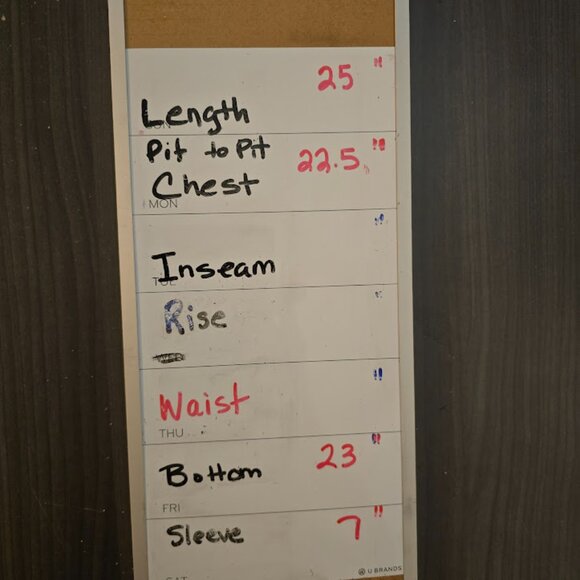 25 "
Length
Pit to Pit
22.5 "
Chest
MON
"
Inseam
TUE
"
Rise
"
Waist
THU
23 "
Bottom
FRI
7 "
Sleeve
SAT
U BRANDS